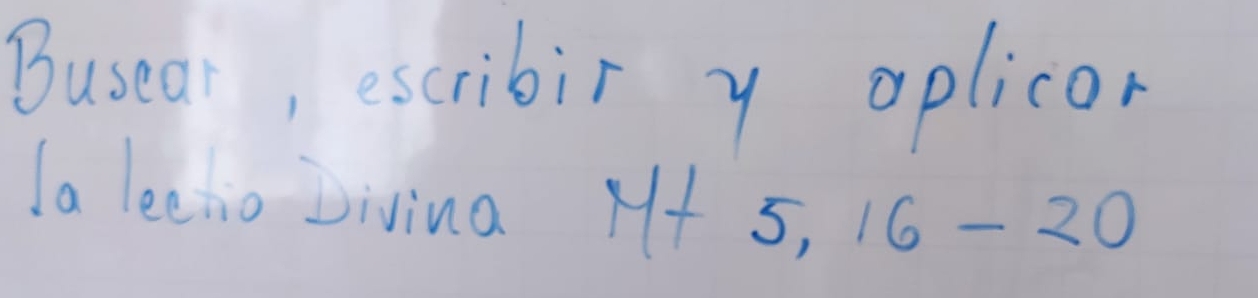 Buscar, escribir y aplicar
la lectio Divina Mt 5, 16 - 20